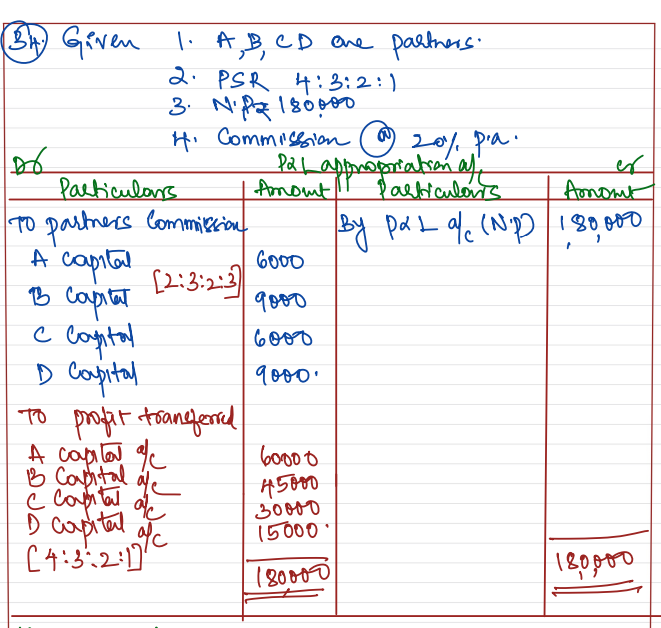 34) Given 1. A, B, C D are partners.
2. PSR 4:3:2:1
3. N.P = 180,000
4. Commission @ 20% p.a.
Dr P&L appropriation a/c cr
Particulars Amount Particulars Amount
To partners Commission By P&L a/c (N.P) 1,80,000
A Capital 6000
[2:3:2:3]
B Capital 9000
C Capital 6000
D Capital 9000.
To profit transferred
A capital a/c 60000
B Capital a/c 45000
C Capital a/c 30000
D Capital a/c 15000.
[4:3:2:1] 180000 1,80,000